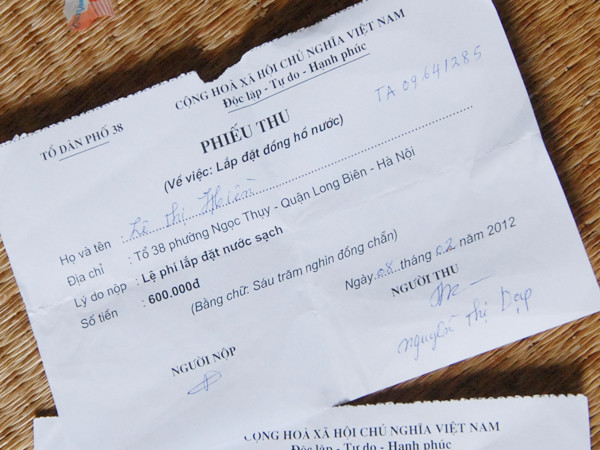 CỘNG HOÀ XÃ HỘI CHỦ NGHĨA VIỆT NAM
Độc lập - Tự do - Hạnh phúc
TỔ DÂN PHỐ 38
TA 09641285
PHIẾU THU
(Về việc: Lắp đặt đồng hồ nước)
Họ và tên : Lê Thị Hiền
Địa chỉ : Tổ 38 phường Ngọc Thụy - Quận Long Biên - Hà Nội
Lý do nộp : Lệ phí lắp đặt nước sạch
Số tiền : 600.000đ (Bằng chữ: Sáu trăm nghìn đồng chẵn)
Ngày 08 tháng 02 năm 2012
NGƯỜI NỘP
NGƯỜI THU
Nguyễn Thị Dẹp
CỘNG HOÀ XÃ HỘI CHỦ NGHĨA VIỆT NAM
Độc lập - Tự do - Hạnh phúc